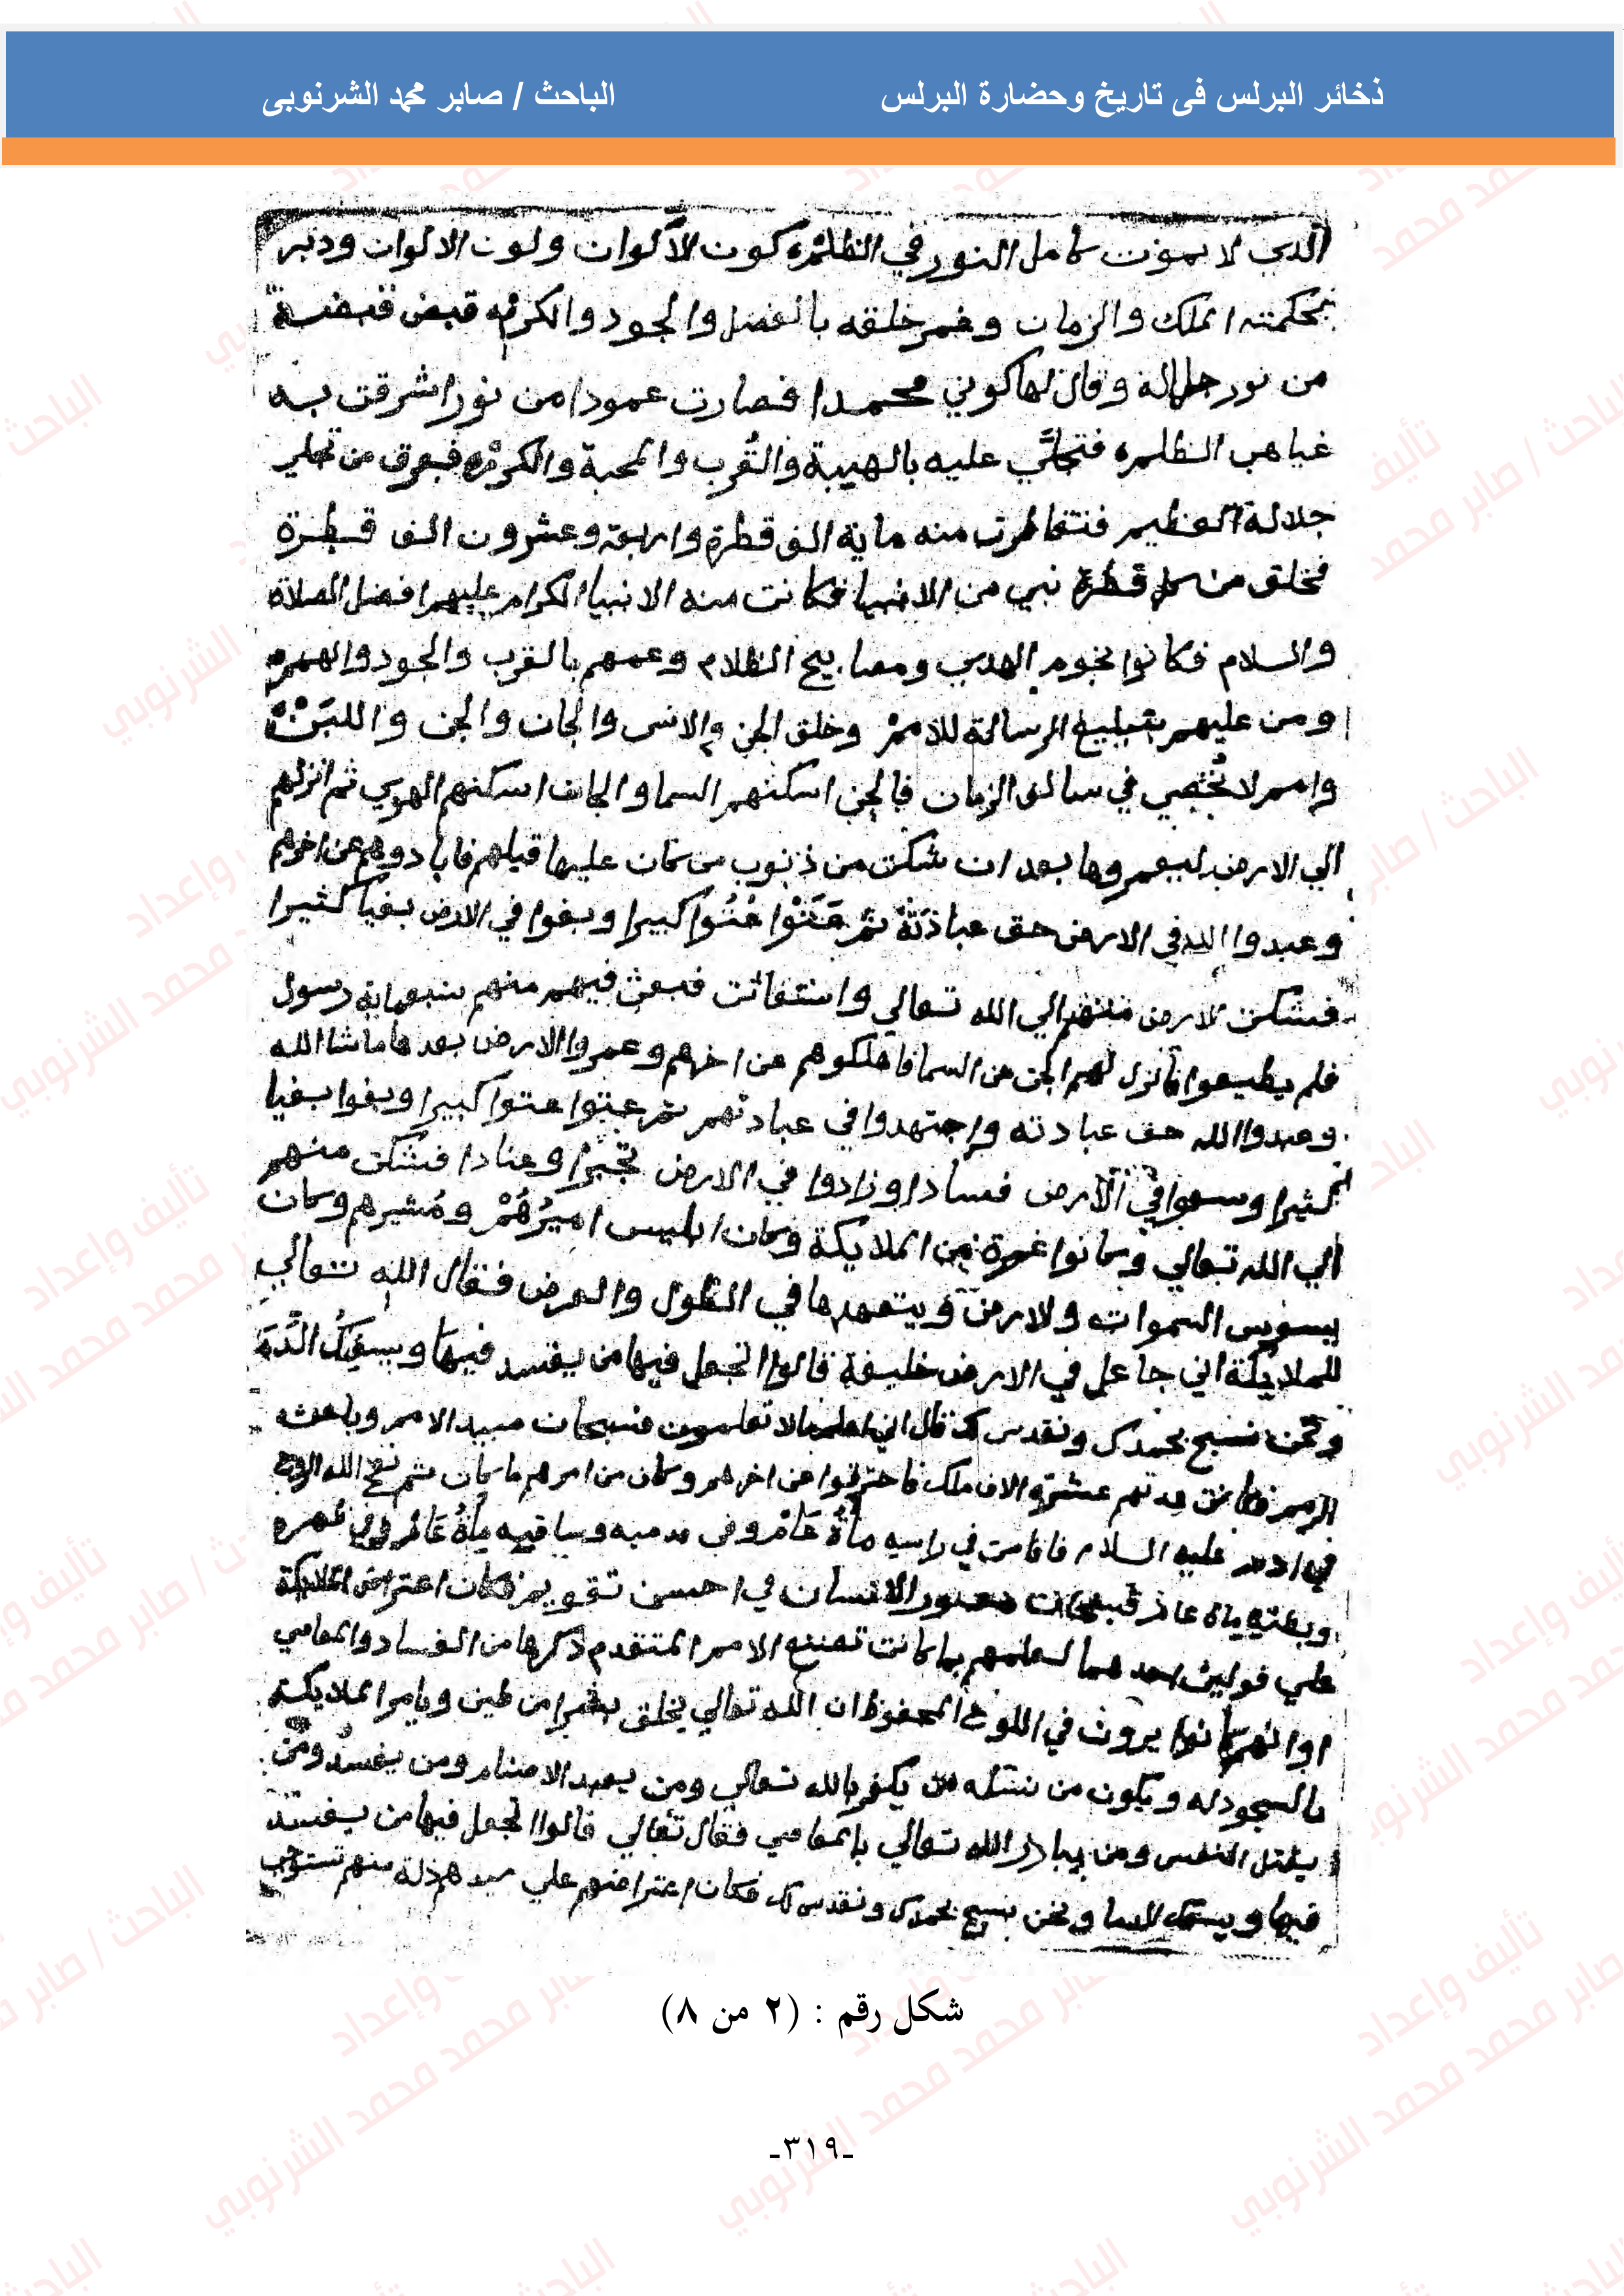 ذخائر البرلس فى تاريخ وحضارة البرلس الباحث / صابر محمد الشرنوبى
الذي لا يموت كامل النور في الظلمه كون الاكوان ولون الالوان ودبر
بحكمته الملك والزمان وغمر خلقه بالفضل والجود والكرم قبض قبضة
من نور جلاله وقال لها كوني محمدا فصارت عمودا من نور اشرقت به
غياهب الظلمه فتجلي عليه بالهيبة والقُرب والمحبة والكرم فعرق من تجلي
جلالة العظيم فتقاطرت منه ماية الف قطرة واربعة وعشرون الف قطرة
فخلق من كل قطرة نبي من الانبيا فكانت منه الانبيا الكرام عليهم افضل الصلاة
والسلام فكانوا نجوم الهدي ومصابيح الظلام وعمهم بالقرب والجود والهمم
ومن عليهم بتبليغ الرسالة للامم وخلق الجن والانس والجان والجن
وامم لا تُحصي في سالف الزمان فالجن اسكنهم السما والجان اسكنهم الهوي ثم انزلهم
الي الارض ليعمروها بعد ان شكت من ذنوب من كان عليها قبلهم فابادوهم عن اخرهم
وعبدوا الله في الارض حق عبادته ثم عتوا عتوا كبيرا وبغوا في الارض بغيا كثيرا
فشكت الارض منهم الي الله تعالي واستغاثت فبعث فيهم منهم رسول
فلم يطيعوا فانزل لهم الجن من السما فاهلكوهم عن اخرهم وعمروا الارض بعدها ماشا الله
وعبدوا الله حق عبادته واجتهدوا في عبادتهم ثم عتوا عتوا كبيرا وبغوا بغيا
كثيرا وسعوا في الارض فسادا وزادوا في الارض تجبرا وعنادا فشكت منهم
الي الله تعالي وكانوا من الملايكة وكان ابليس اميرهُمْ ومُشيرهم وكان
يسوس السموات ولارض ويتعهدها في الطول والعرض فقال الله تعالي
للملايكة اني جاعل في الارض خليفة قالوا اتجعل فيها من يفسد فيها ويسفِكُ الدَّمَ
ونحن نسبح بحمدك ونقدس لك قال اني اعلم مالا تعلمون فسبحان مبيد الامم وباعث
الرمم فكانت عدتهم عشرة الاف ملك فاحترقوا عن اخرهم وكان من امرهم ما كان ثم نفخ الله الروح
في ادم عليه السلام فاقامت في راسه مأة عام وفي وساقيه مأة عام وفي ظهره
وبطنه ماة عام فسبحان مصور الانسان في احسن تقويم فكان اعتراض الملايكة
علي قولين احدهما لعلمهم بما كانت تصنعه الامم المتقدم ذكرها من الفساد والمعاصي
او انهم كانوا يرون في اللوح المحفوظ ان الله تعالي يخلق بشرا من طين ويامر الملايكة
بالسجود له ويكون من نسله من يكفر بالله تعالي ومن يعبد الاصنام ومن يفسد ومن
يقتل النفس ومن يبادر الله تعالي بالمعاصي فقال تعالي قالوا اتجعل فيها من يفسد
فيها ويسفك الدما ونحن نسبح بحمدك ونقدس لك فكان اعتراضهم علي
شكل رقم : (٢ من ٨)
-٣١٩-